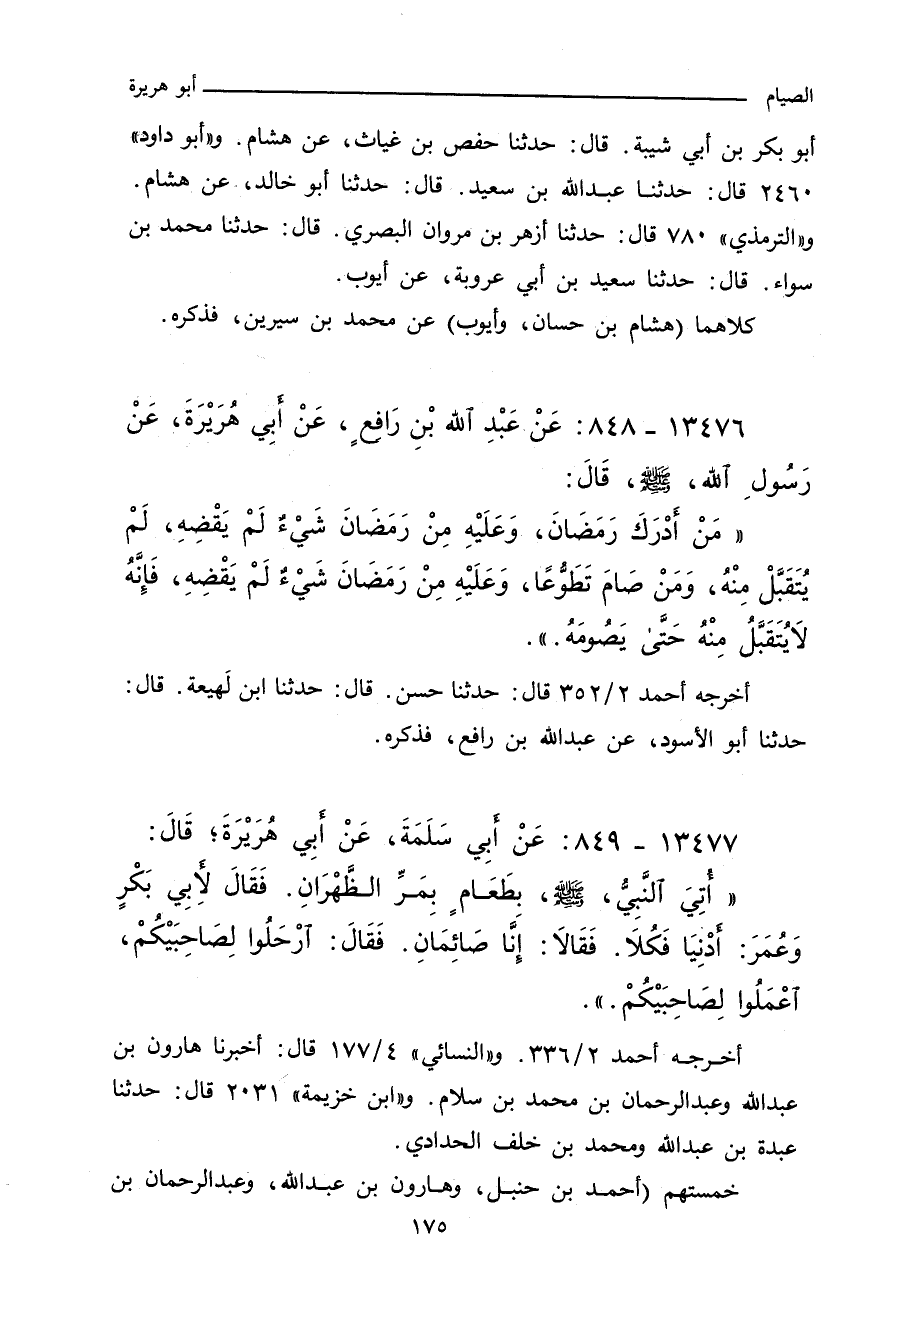 الصيام ــــــــــــــــــــ أبو هريرة
أبو بكر بن أبي شيبة. قال: حدثنا حفص بن غياث، عن هشام. و«أبو داود»
٢٤٦٠ قال: حدثنـا عبـدالله بن سعيد. قال: حدثنا أبو خالد، عن هشام.
و«الترمذي» ٧٨٠ قال: حدثنا أزهر بن مروان البصري. قال: حدثنا محمد بن
سواء. قال: حدثنا سعيد بن أبي عروبة، عن أيوب.
كلاهما (هشام بن حسان، وأيوب) عن محمد بن سيرين، فذكره.
١٣٤٧٦ ـ ٨٤٨: عَنْ عَبْدِ ٱللهِ بْنِ رَافِعٍ، عَنْ أَبِي هُرَيْرَةَ، عَنْ
رَسُولِ ٱللهِ، ﷺ، قَالَ:
« مَنْ أَدْرَكَ رَمَضَانَ، وَعَلَيْهِ مِنْ رَمَضَانَ شَيْءٌ لَمْ يَقْضِهِ، لَمْ
يُتَقَبَّلْ مِنْهُ، وَمَنْ صَامَ تَطَوُّعًا، وَعَلَيْهِ مِنْ رَمَضَانَ شَيْءٌ لَمْ يَقْضِهِ، فَإِنَّهُ
لَايُتَقَبَّلُ مِنْهُ حَتَّىٰ يَصُومَهُ.».
أخرجه أحمد ٣٥٢/٢ قال: حدثنا حسن. قال: حدثنا ابن لَهيعة. قال:
حدثنا أبو الأسود، عن عبدالله بن رافع، فذكره.
١٣٤٧٧ ـ ٨٤٩: عَنْ أَبِي سَلَمَةَ، عَنْ أَبِي هُرَيْرَةَ؛ قَالَ:
« أُتِيَ ٱلنَّبِيُّ، ﷺ، بِطَعَـامٍ بِمَـرِّ الـظَّهْرَانِ. فَقَالَ لِأَبِي بَكْرٍ
وَعُمَرَ: أَدْنِيَا فَكُلَا. فَقَالَا: إِنَّا صَائِمَانِ. فَقَالَ: ٱرْحَلُوا لِصَاحِبَيْكُمْ،
ٱعْمَلُوا لِصَاحِبَيْكُمْ.».
أخـرجـه أحمد ٣٣٦/٢. و«النسائي» ١٧٧/٤ قال: أخبرنا هارون بن
عبدالله وعبدالرحمان بن محمد بن سلام. و«ابن خزيمة» ٢٠٣١ قال: حدثنا
عبدة بن عبدالله ومحمد بن خلف الحدادي.
خمستهم (أحمـد بن حنبل، وهـارون بن عبـدالله، وعبدالرحمان بن
١٧٥